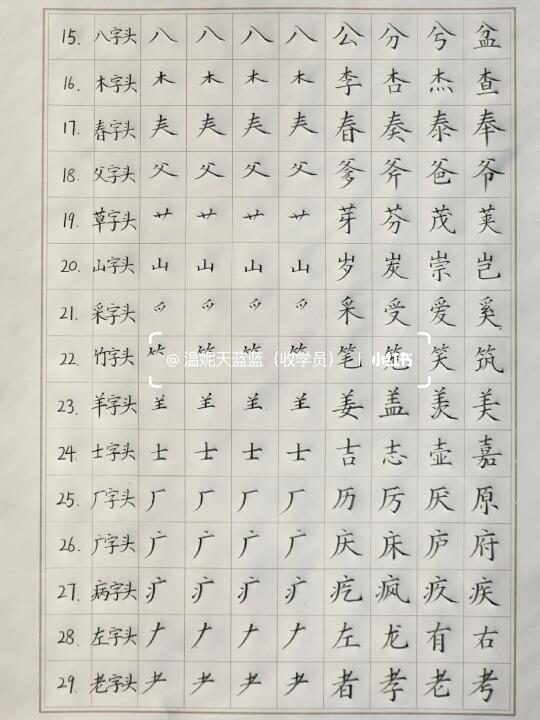 15. 八字头 八 八 八 八 公 分 兮 盆
16. 木字头 木 木 木 木 李 杏 杰 查
17. 春字头 𡗗 𡗗 𡗗 𡗗 春 奏 泰 奉
18. 父字头 父 父 父 父 爹 斧 爸 爷
19. 草字头 艹 艹 艹 艹 芽 芬 茂 荚
20. 山字头 山 山 山 山 岁 炭 崇 岂
21. 采字头 爫 爫 爫 爫 采 受 爱 奚
22. 竹字头 ⺮ ⺮ ⺮ ⺮ 笔 笑 筑
@温妮天蓝蓝（收学员） 小红书
23. 羊字头 𦍌 𦍌 𦍌 𦍌 姜 盖 羡 美
24. 士字头 士 士 士 士 吉 志 壶 嘉
25. 厂字头 厂 厂 厂 厂 历 厉 厌 原
26. 广字头 广 广 广 广 庆 床 庐 府
27. 病字头 疒 疒 疒 疒 疙 疯 疚 疾
28. 左字头 𠂇 𠂇 𠂇 𠂇 左 龙 有 右
29. 老字头 耂 耂 耂 耂 者 孝 老 考